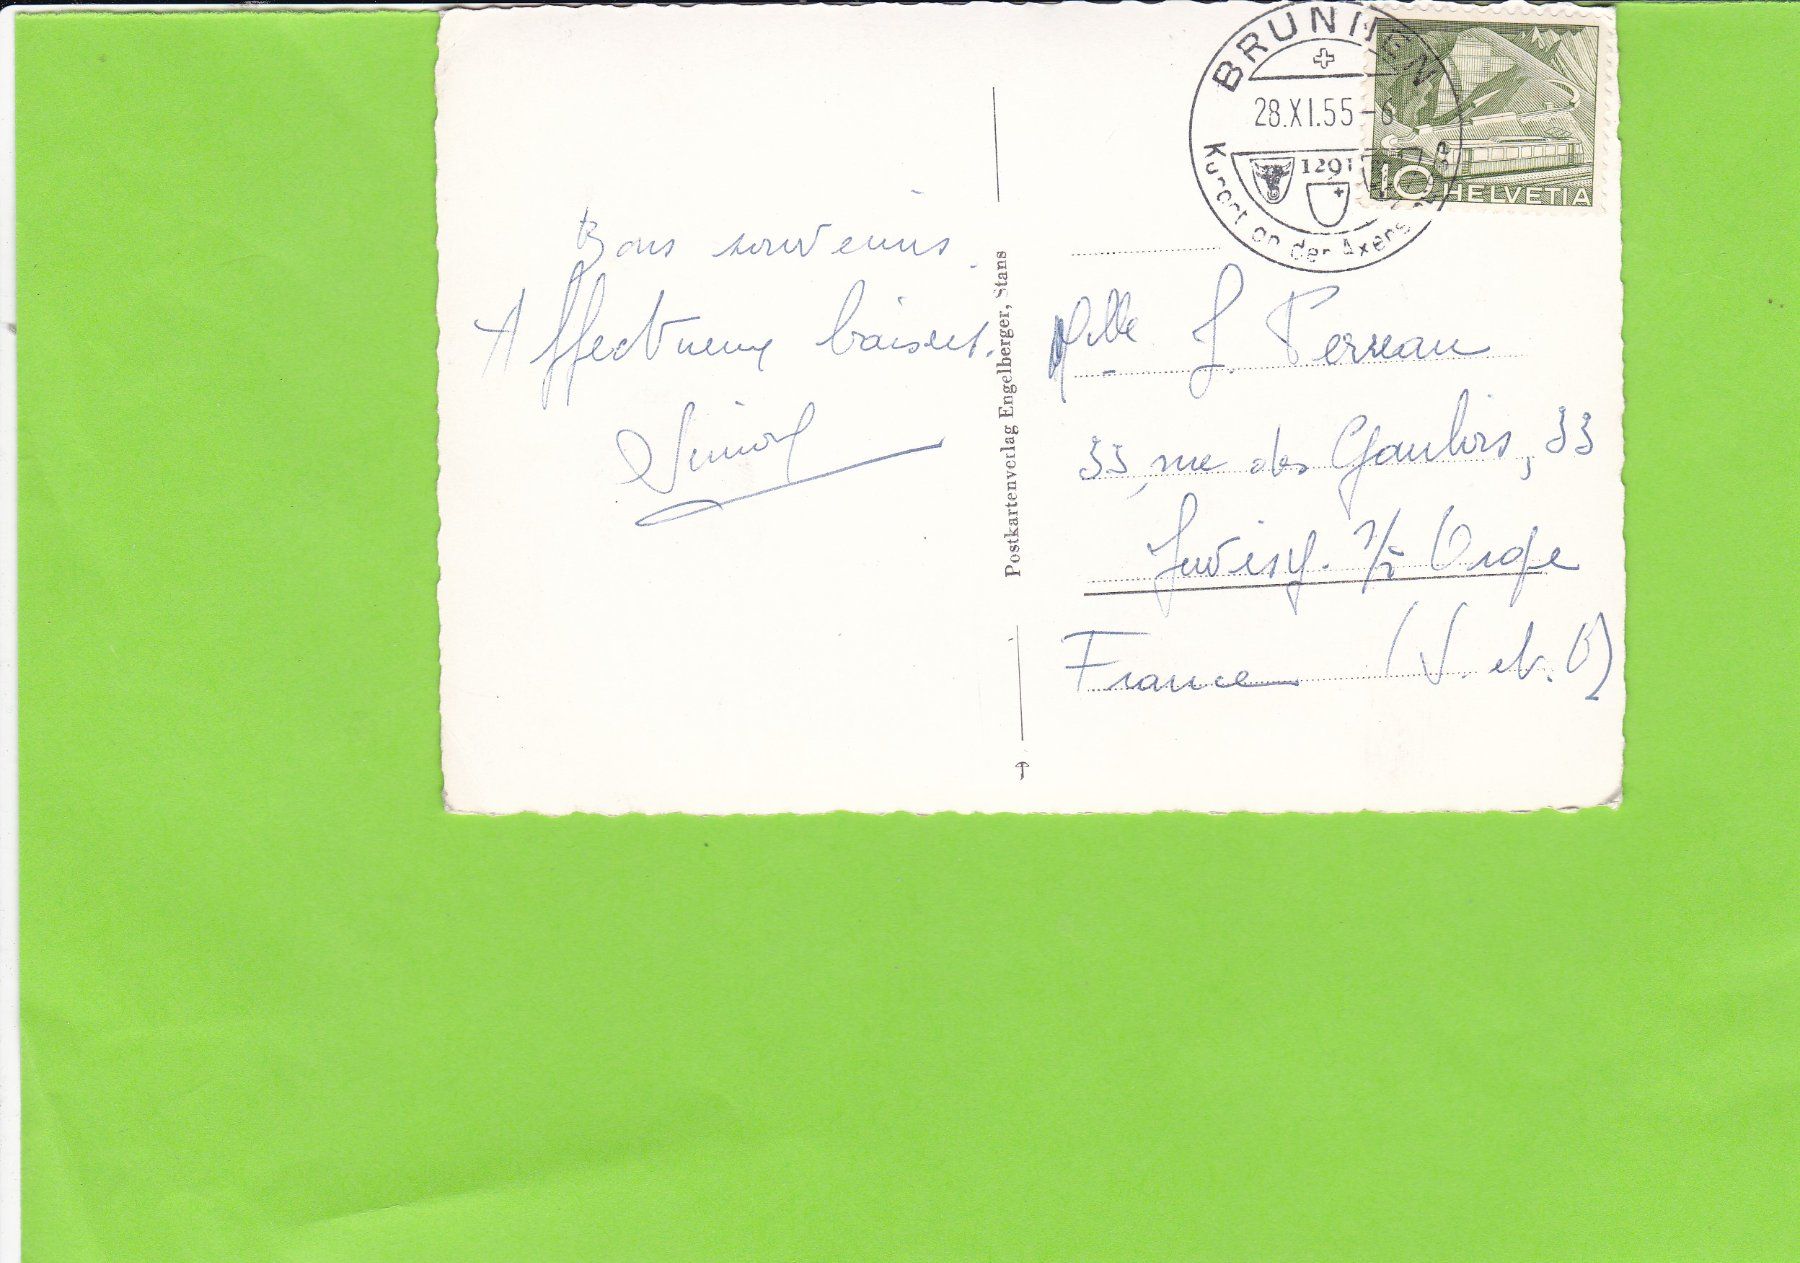 Bons souvenirs.
Affectueux baisers.
Postkartenverlag Engelberger, Stans
BRUNNEN
28.XI.55-6
1291
Kurort an der Axenstrasse
10 HELVETIA
Mlle J. Perreau
33, rue des Gaulois, 33
Juvisy s/ Orge
France (S. et. O)